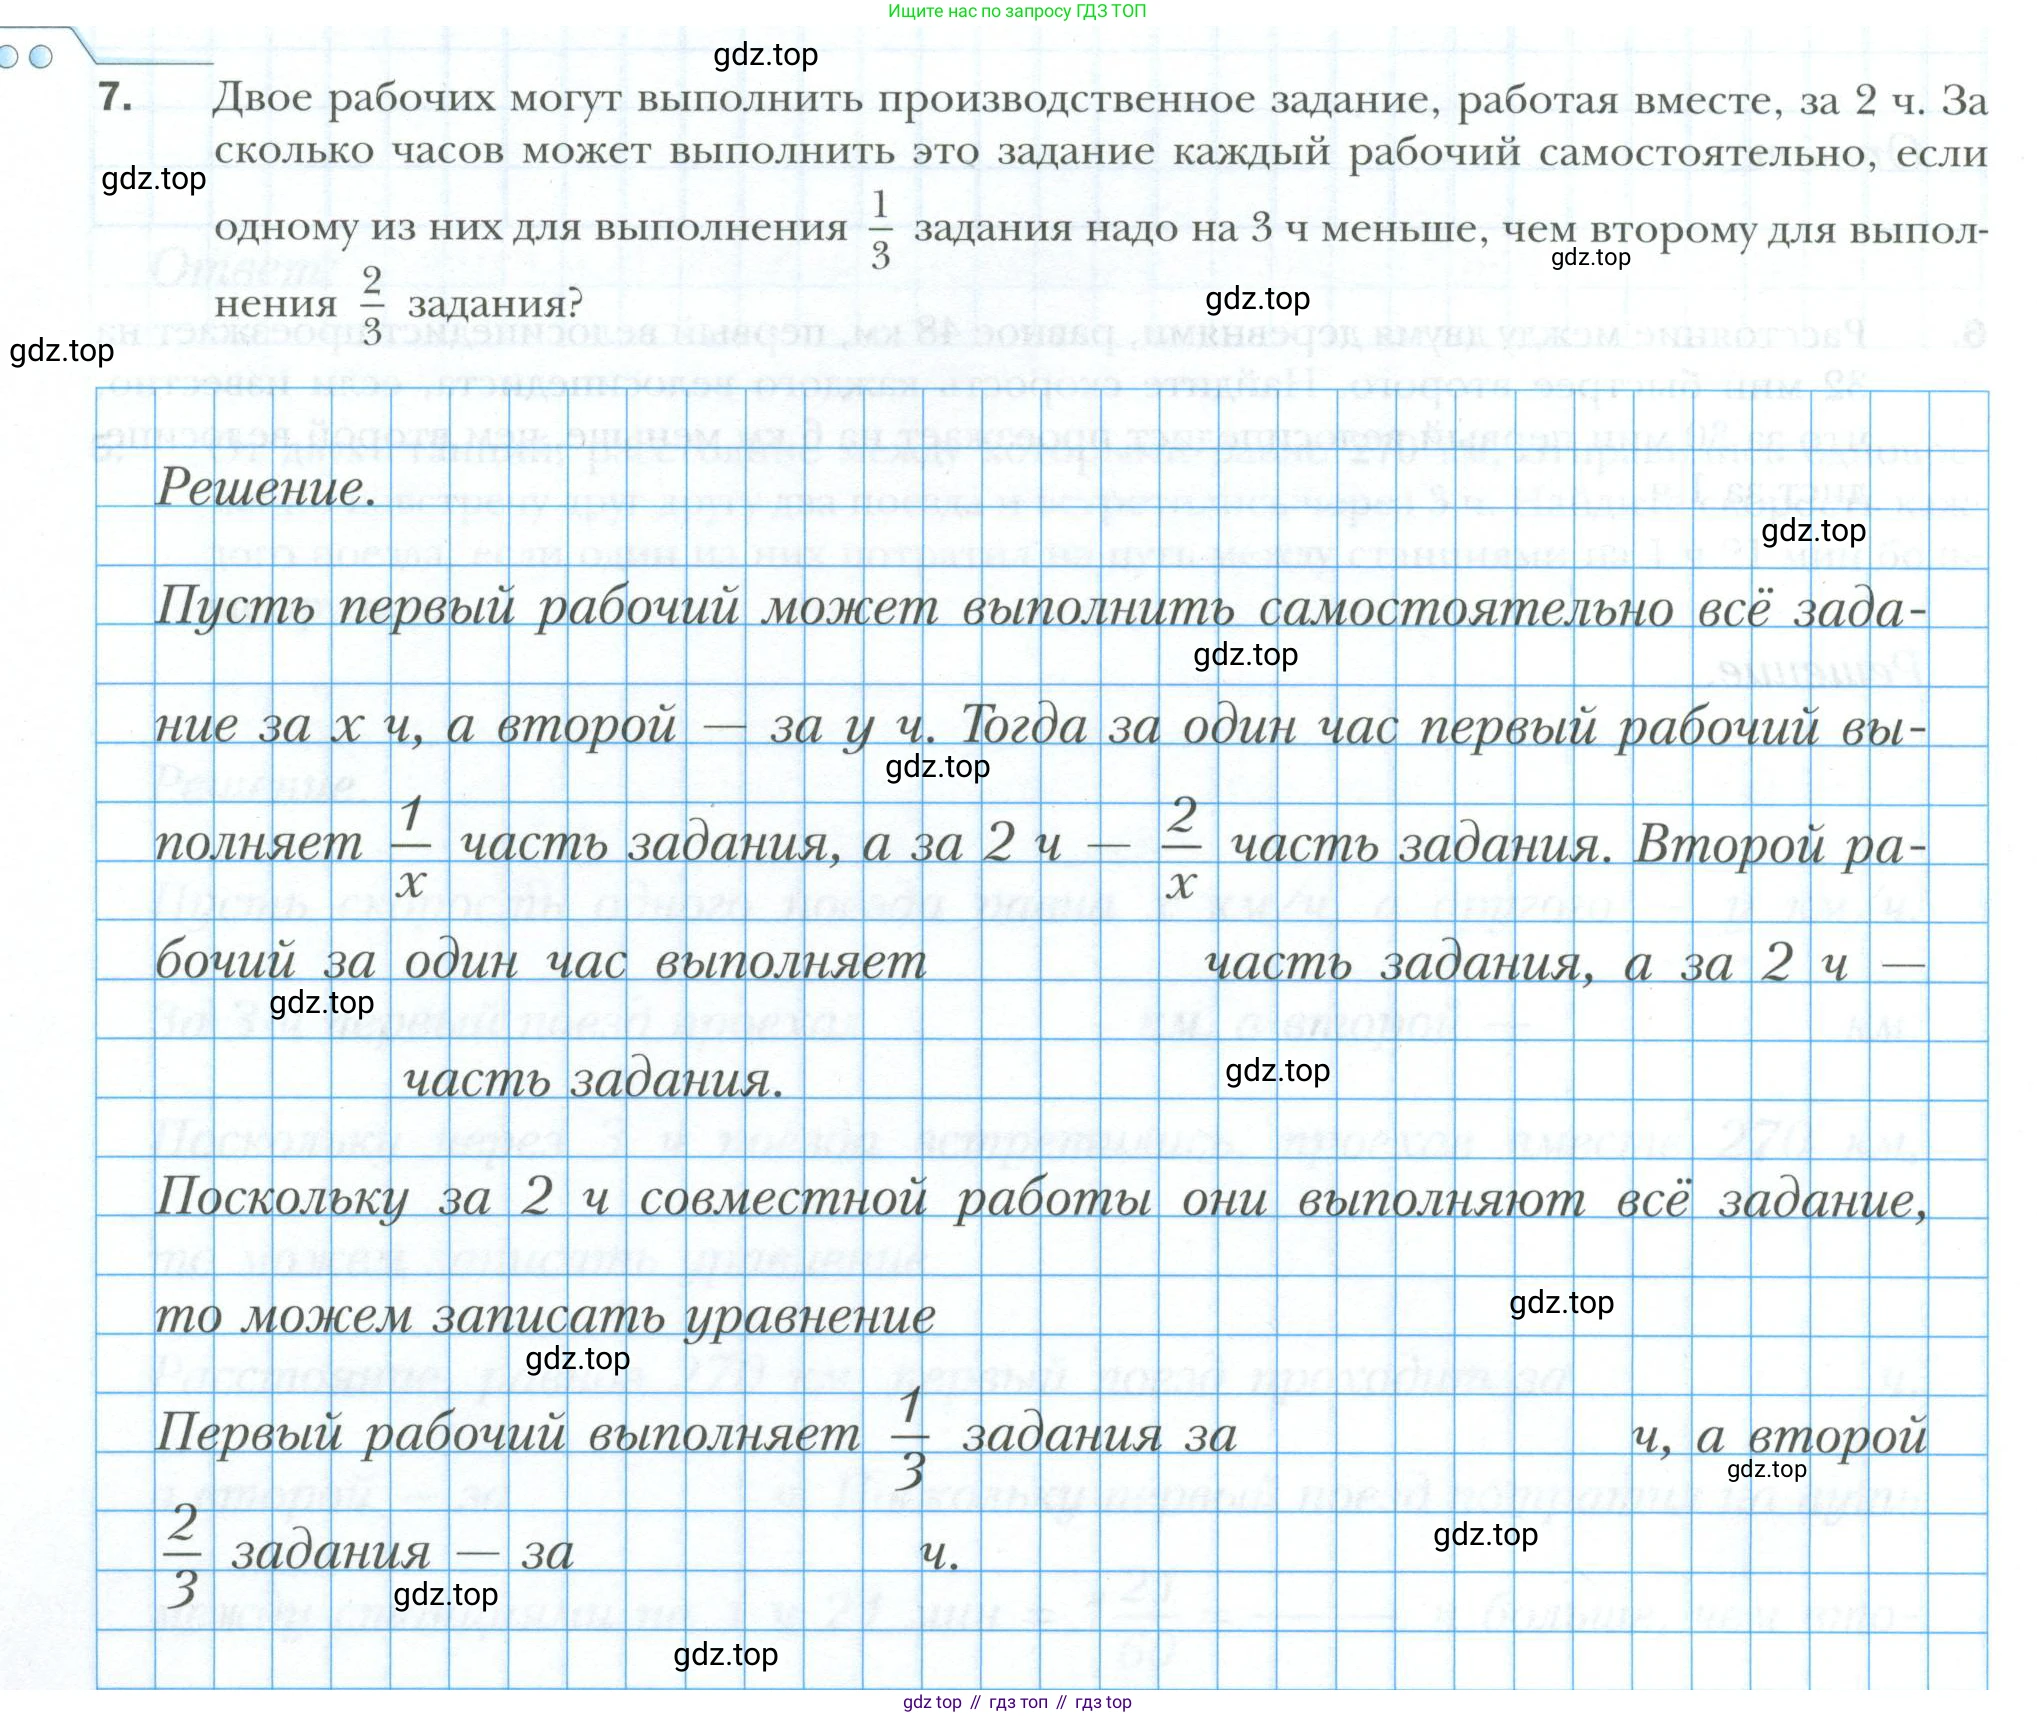 Ищите нас по запросу ГДЗ ТОП
gdz.top
7. Двое рабочих могут выполнить производственное задание, работая вместе, за 2 ч. За
сколько часов может выполнить это задание каждый рабочий самостоятельно, если
gdz.top
одному из них для выполнения 1/3 задания надо на 3 ч меньше, чем второму для выпол-
gdz.top
нения 2/3 задания?
gdz.top
gdz.top
Решение.
gdz.top
Пусть первый рабочий может выполнить самостоятельно всё зада-
gdz.top
ние за x ч, а второй — за y ч. Тогда за один час первый рабочий вы-
gdz.top
полняет 1/x часть задания, а за 2 ч — 2/x часть задания. Второй ра-
бочий за один час выполняет часть задания, а за 2 ч —
gdz.top
часть задания.
gdz.top
Поскольку за 2 ч совместной работы они выполняют всё задание,
то можем записать уравнение
gdz.top
gdz.top
Первый рабочий выполняет 1/3 задания за ч, а второй
gdz.top
2/3 задания — за ч.
gdz.top
gdz.top
gdz.top
gdz top // гдз топ // гдз top